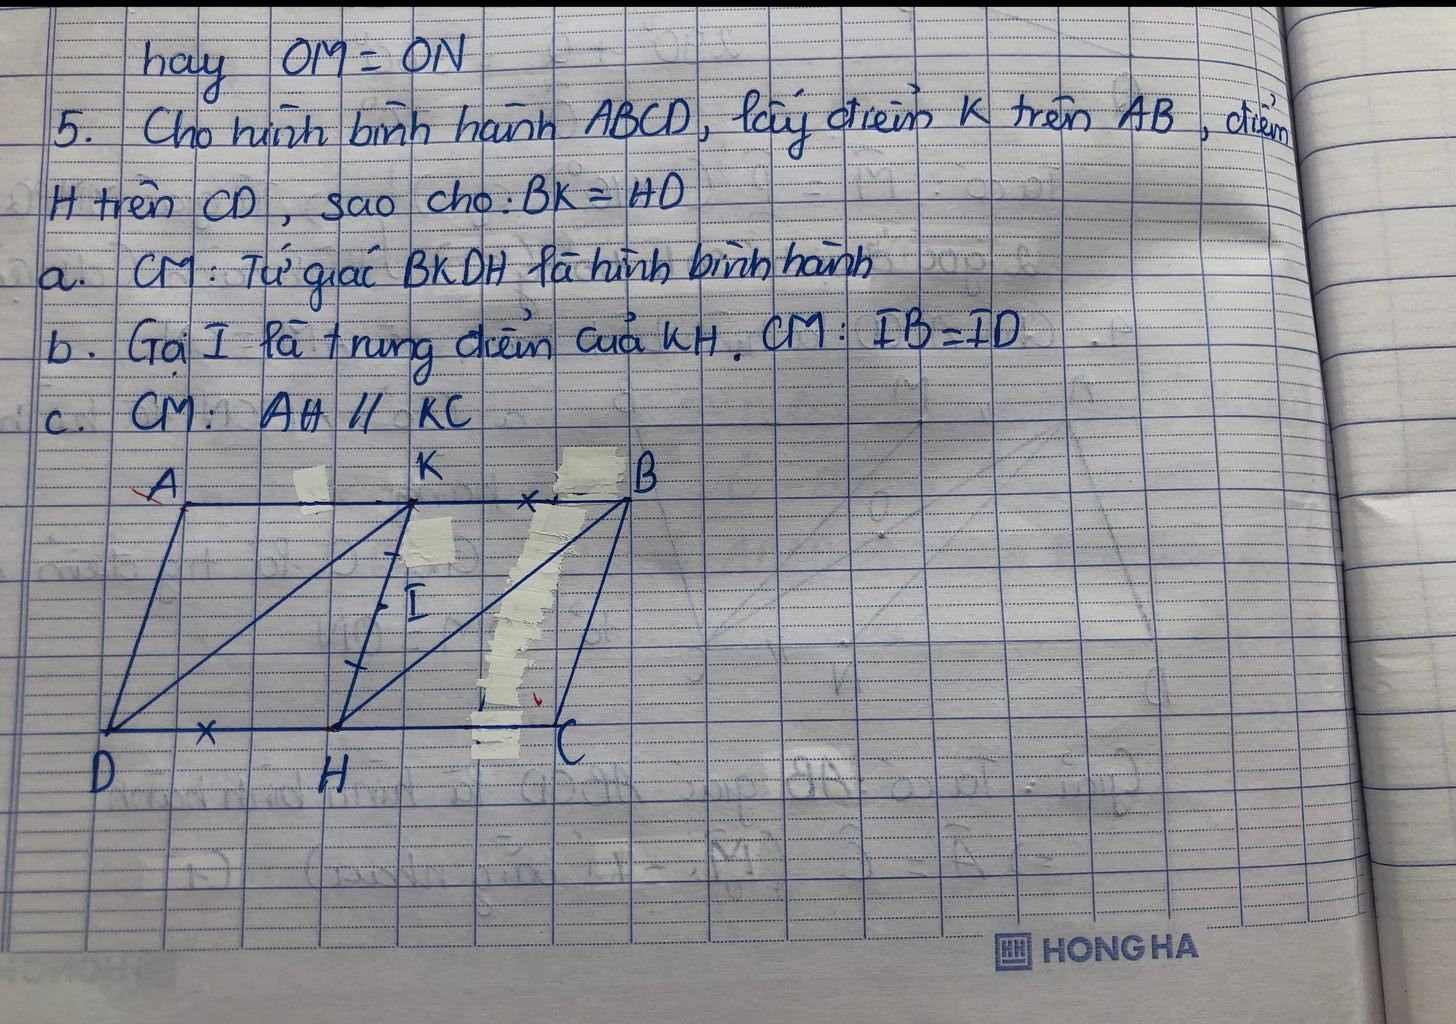 hay OM = ON
5. Cho hình bình hành ABCD, lấy điểm K trên AB, điểm
H trên CD, sao cho: BK = HD
a. CM: Tứ giác BKDH là hình bình hành
b. Gọi I là trung điểm của KH. CM: IB = ID
c. CM: AH // KC
A K B
I
D H C
HH HONG HA